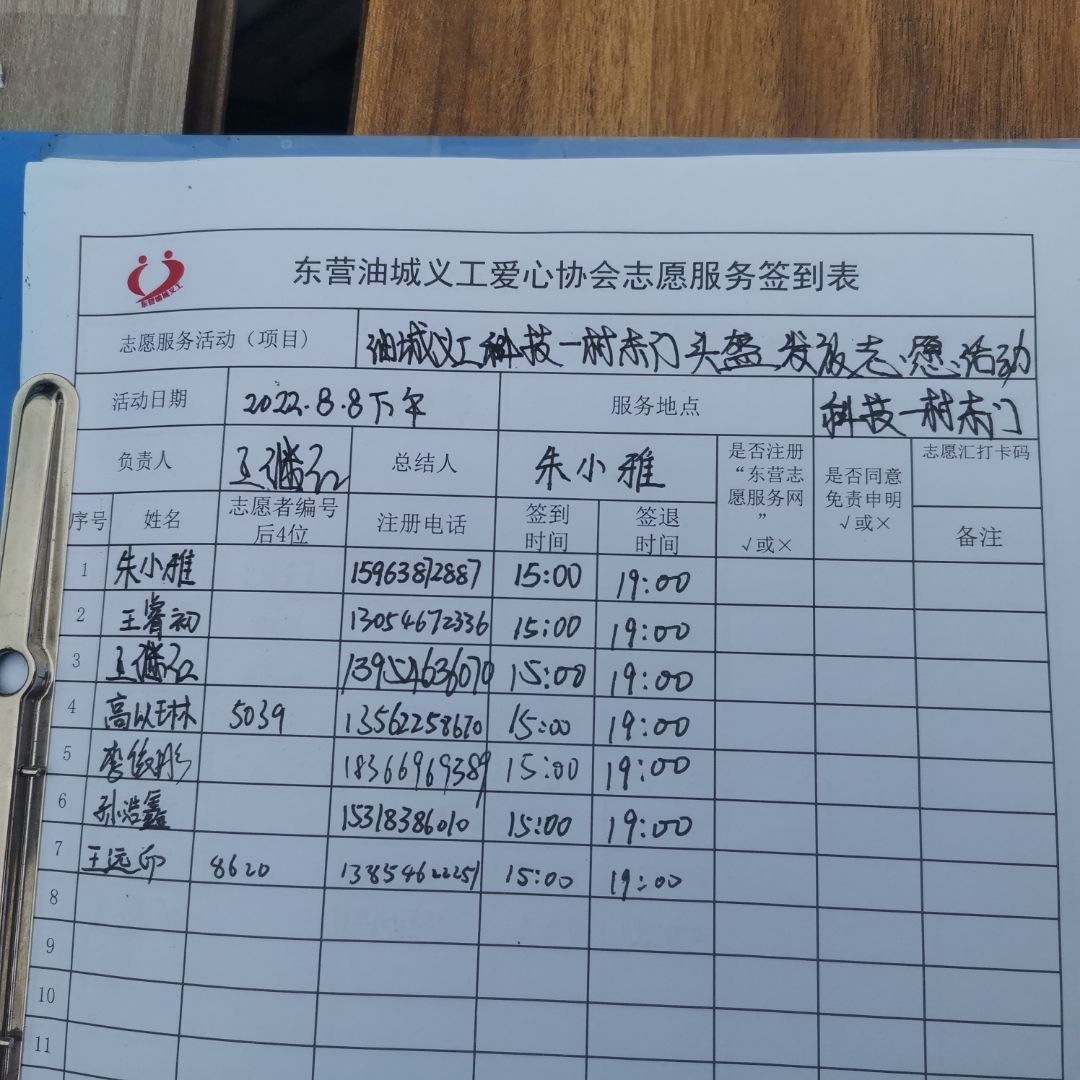 东营油城义工
东营油城义工爱心协会志愿服务签到表
志愿服务活动（项目） 油城义工科技一村东门头盔发放志愿活动
活动日期 2022.8.8下午 服务地点 科技一村东门
负责人 总结人 朱小雅 是否注册“东营志愿服务网” √或× 是否同意免责申明 √或× 志愿汇打卡码
序号 姓名 志愿者编号后4位 注册电话 签到时间 签退时间 备注
1 朱小雅 15963872887 15:00 19:00
2 王睿初 13054672336 15:00 19:00
3 13954636070 15:00 19:00
4 高以琳 5039 13562258670 15:00 19:00
5 李俊彤 18366969389 15:00 19:00
6 孙浩鑫 15318386010 15:00 19:00
7 王远 8620 13854622251 15:00 19:00
8
9
10
11